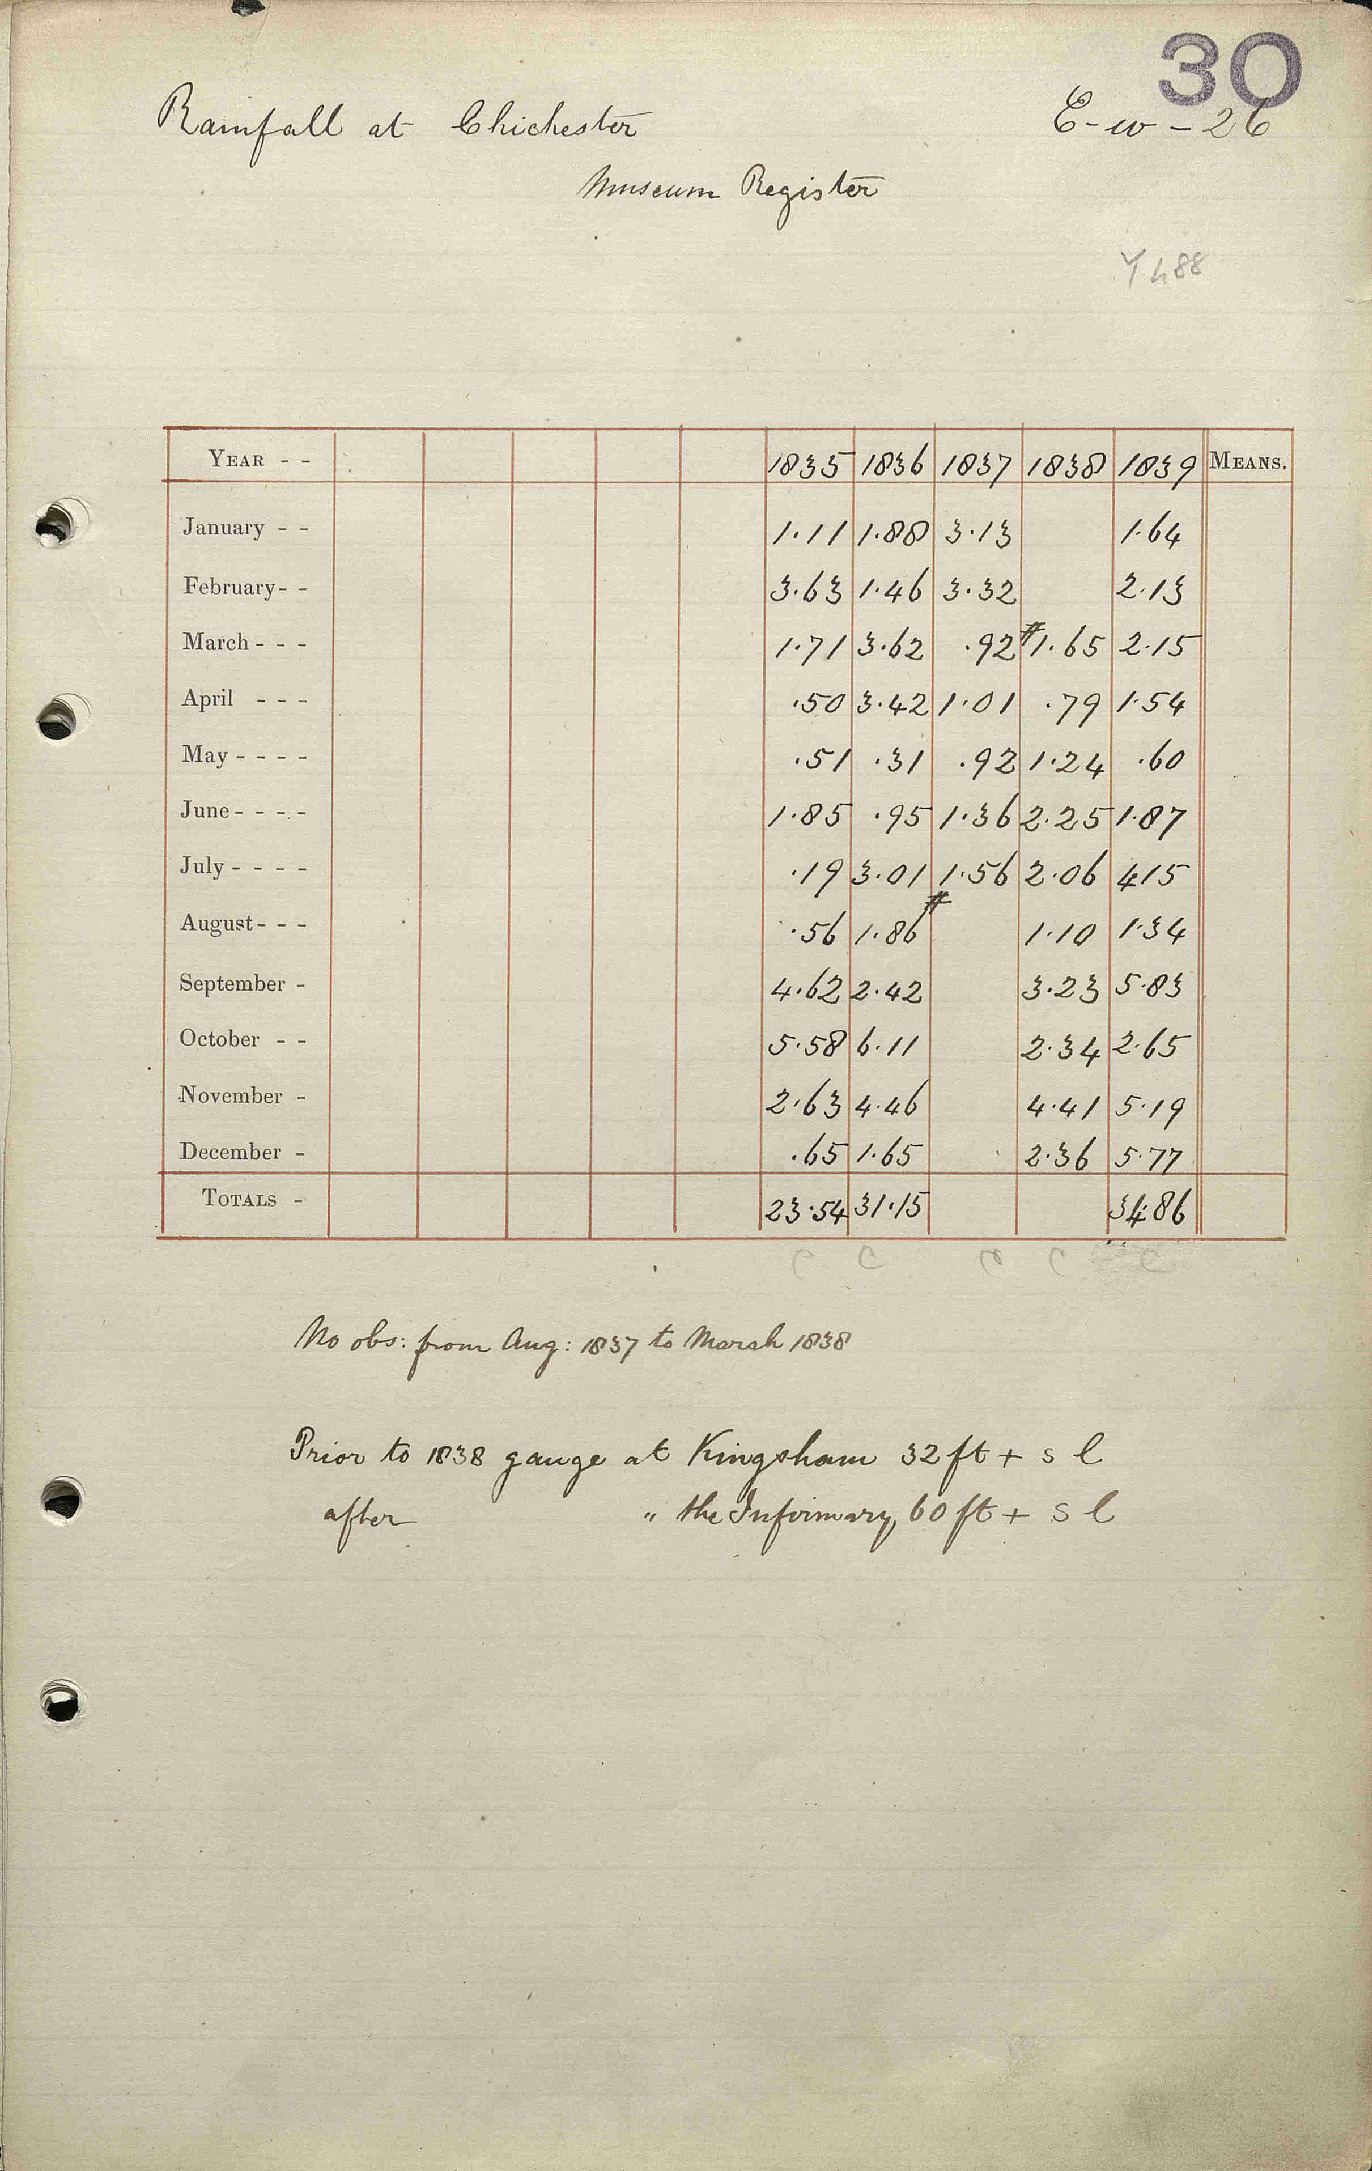 30
Rainfall at Chichester E-w-26
Museum Register
YEAR - - 1835 1836 1837 1838 1839 MEANS.
January - - 1.11 1.88 3.13 1.64
February - - 3.63 1.46 3.32 2.13
March - - - 1.71 3.62 .92 #1.65 2.15
April - - - .50 3.42 1.01 .79 1.54
May - - - - .51 .31 .92 1.24 .60
June - - - - 1.85 .95 1.36 2.25 1.87
July - - - - .19 3.01 1.56 2.06 415
August - - - .56 1.86 # 1.10 1.34
September - 4.62 2.42 3.23 5.83
October - - 5.58 6.11 2.34 2.65
November - 2.63 4.46 4.41 5.19
December - .65 1.65 2.36 5.77
TOTALS - 23.54 31.15 34.86
No obs: from Aug: 1837 to March 1838
Prior to 1838 gauge at Kingsham 32 ft + s l
after " the Infirmary, 60 ft + s l